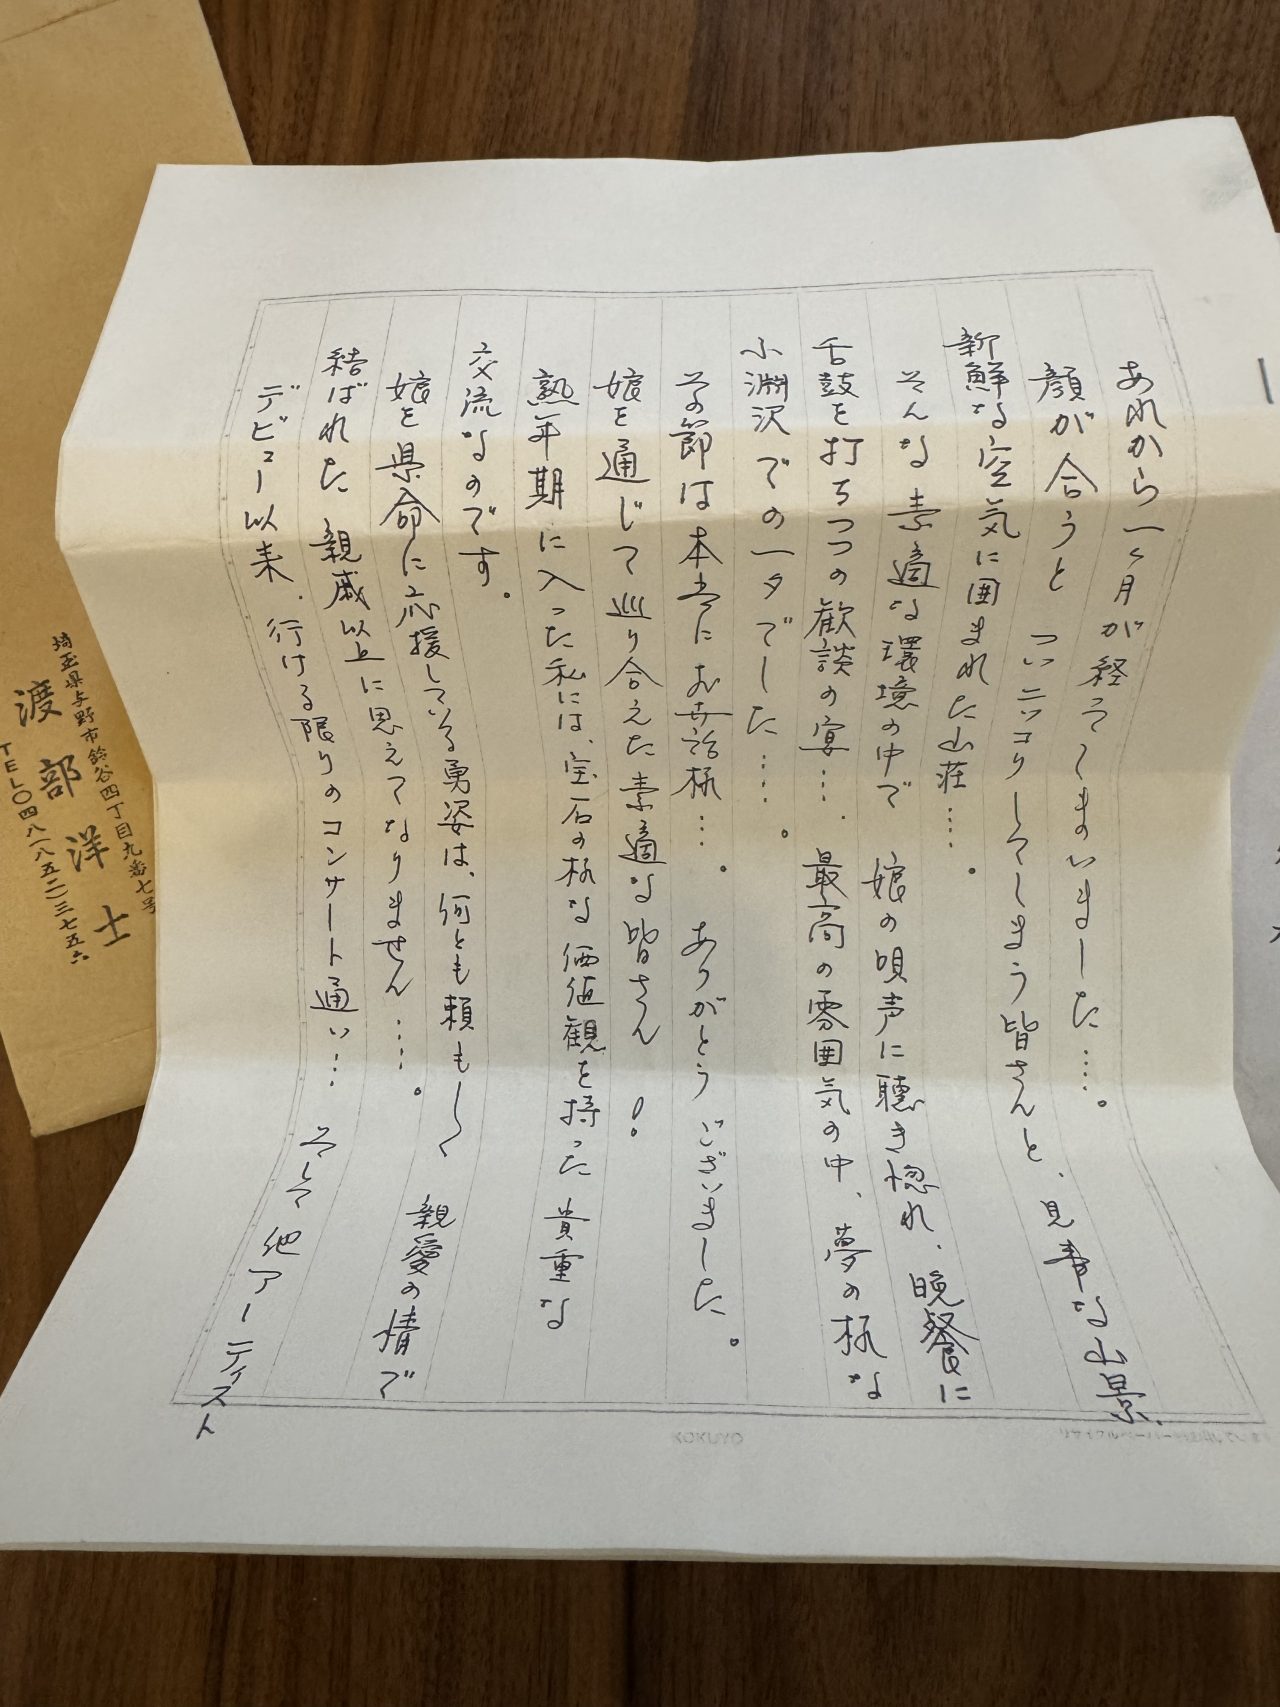 あれから一ヶ月が経ってしまいました‥‥。
顔が合うと つい ニッコリしてしまう皆さんと、見事な山景、
新鮮な空気に囲まれた山荘‥‥。
そんな素適な環境の中で 娘の唄声に聴き惚れ、晩餐に
舌鼓を打ちつつの歓談の宴‥‥ 最高の雰囲気の中、夢の様な
小淵沢での一夕でした‥‥。
その節は本当にお世話様‥‥。 ありがとうございました。
娘を通じて巡り合えた素適な皆さん!。
熟年期に入った私には、宝石の様な価値観を持った貴重な
交流なのです。
娘を県命に応援している勇姿は、何とも頼もしく 親愛の情で
結ばれた親戚以上に思えてなりません‥‥。
デビュー以来、行ける限りのコンサート通い‥‥ そして他アーティスト
KOKUYO
埼玉県与野市鈴谷四丁目九番七号
渡部洋士
TEL〇四八―八五二―三七五六